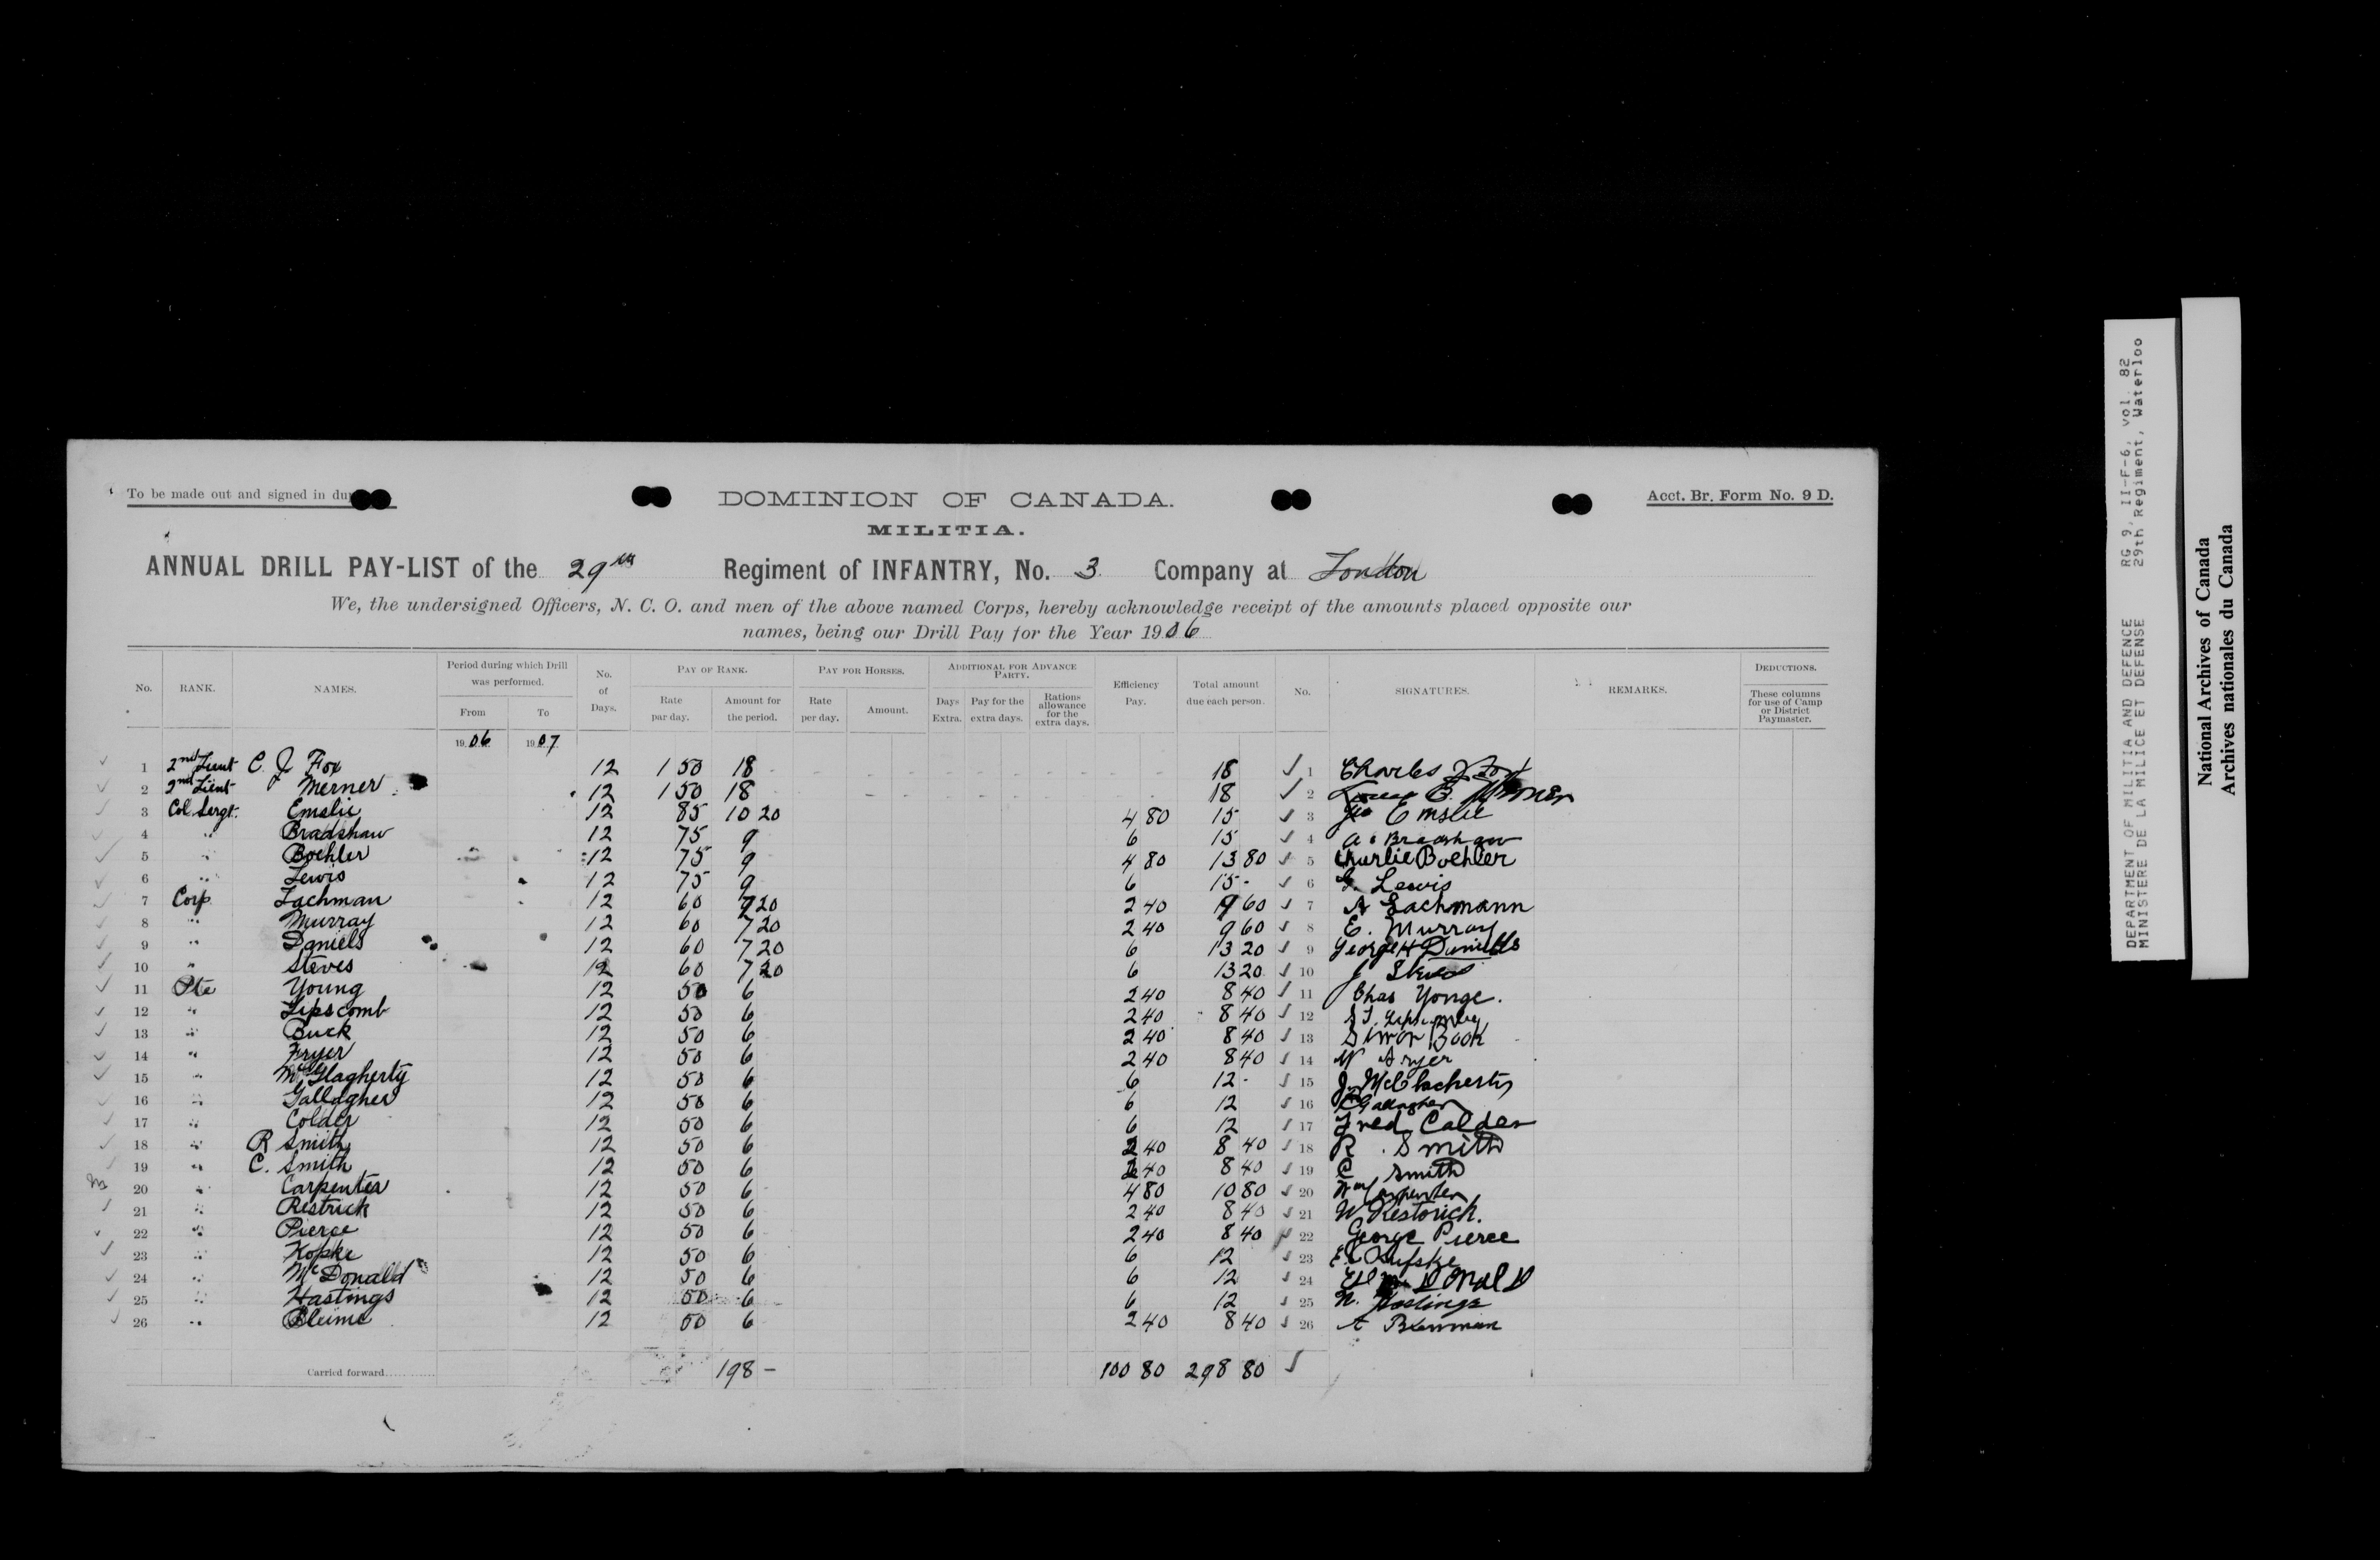 To be made out and signed in du
DOMINION OF CANADA.
Acct. Br. Form No. 9 D.
MILITIA.
ANNUAL DRILL PAY-LIST of the 29th Regiment of INFANTRY, No. 3 Company at London
We, the undersigned Officers, N. C. O. and men of the above named Corps, hereby acknowledge receipt of the amounts placed opposite our
names, being our Drill Pay for the Year 1906
No. RANK. NAMES. Period during which Drill was performed. From To No. of Days. PAY OF RANK. Rate par day. Amount for the period. PAY FOR HORSES. Rate per day. Amount. ADDITIONAL FOR ADVANCE PARTY. Days Extra. Pay for the extra days. Rations allowance for the extra days. Efficiency Pay. Total amount due each person. No. SIGNATURES. REMARKS. DEDUCTIONS. These columns for use of Camp or District Paymaster.
1906 1907
1 2nd Lieut C. J. Fox 12 1 50 18 - 18 1 Charles J Fox
2 2nd Lieut Merner 12 1 50 18 18 2
3 Col Sergt. Emslie 12 85 10 20 4 80 15 3 Geo Emslie
4 " Bradshaw 12 75 9 6 15 4 A. Bradshaw
5 " Boehler 12 75 9 4 80 13 80 5 Charlie Boehler
6 " Lewis 12 75 9 6 15 - 6 G. Lewis
7 Corp Lachman 12 60 7 20 2 40 9 60 7 A Lachmann
8 " Murray 12 60 7 20 2 40 9 60 8 E. Murray
9 " Daniels 12 60 7 20 6 13 20 9 George H Daniells
10 " Steves 12 60 7 20 6 13 20 10 J Steves
11 Pte Young 12 50 6 2 40 8 40 11 Chas Yonge.
12 " Lipscomb 12 50 6 2 40 8 40 12
13 " Buck 12 50 6 2 40 8 40 13 Simon Book
14 " Fryer 12 50 6 2 40 8 40 14 W Fryer
15 " McGlagherty 12 50 6 6 12 - 15 J. McClacherty
16 " Gallagher 12 50 6 6 12 16 Gallagher
17 " Colder 12 50 6 6 12 17 Fred Calder
18 " R Smith 12 50 6 2 40 8 40 18 R. Smith
19 " C. Smith 12 50 6 2 40 8 40 19 C Smith
20 " Carpenter 12 50 6 4 80 10 80 20 Wm Carpenter
21 " Restrick 12 50 6 2 40 8 40 21 W Restorick.
22 " Pierce 12 50 6 2 40 8 40 22 George Pierce
23 " Kopke 12 50 6 6 12 23
24 " McDonald 12 50 6 6 12 24 McDonald
25 " Hastings 12 50 6 6 12 25 N. Hastings
26 " Bleime 12 50 6 2 40 8 40 26
Carried forward 198 - 100 80 298 80
DEPARTMENT OF MILITIA AND DEFENCE RG 9, II-F-6, vol. 82
MINISTERE DE LA MILICE ET DEFENSE 29th Regiment, Waterloo
National Archives of Canada
Archives nationales du Canada